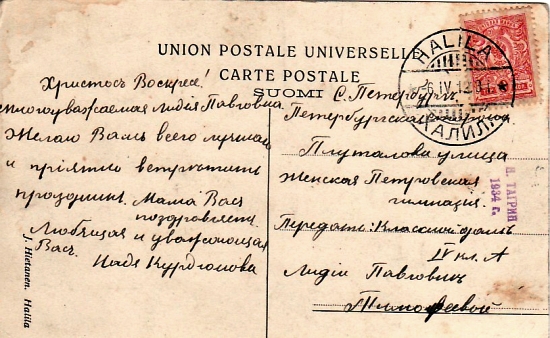 UNION POSTALE UNIVERSELLE
CARTE POSTALE
SUOMI
HALILA
6.IV.12
ХАЛИЛА
Христосъ Воскресе!
многоуважаемая Лидія Павловна
Желаю Вамъ всего лучшаго
и пріятно встрѣтить
праздники. Мама Васъ
поздравляетъ.
Любящая и уважающая
Васъ
Надя Курдюмова
С. Петербургъ
Петербургская
Плуталова улица
Женская Петровская
гимназія.
Передать: Классной дамѣ
IV кл. А
Лидіи Павловнѣ
Тимофеевой
Н. ТАГРИН
1934 г.
J. Hietanen. Halila